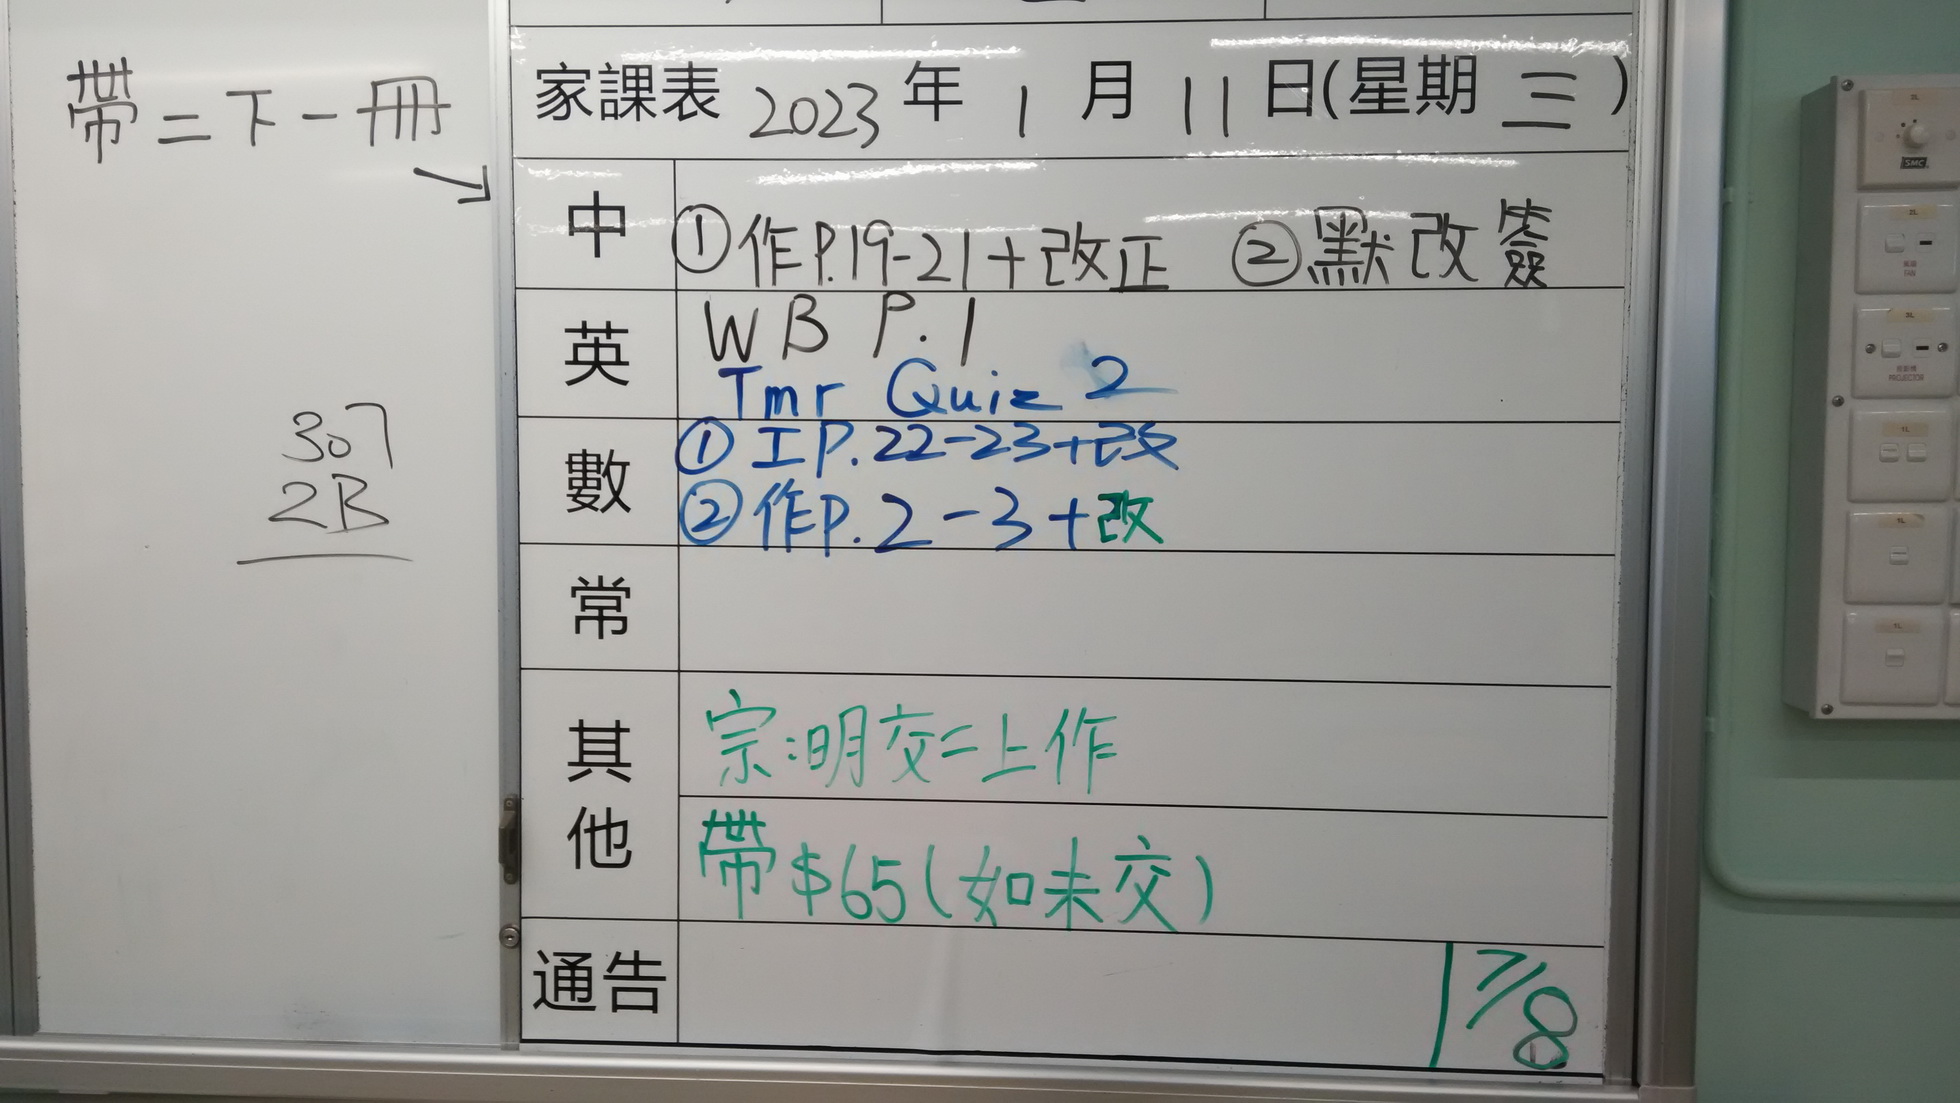 帶二下一冊
307
2B
家課表 2023 年 1 月 11 日(星期 三)
中 ①作P.19-21+改正 ②默改簽
英 WB P.1
Tmr Quiz 2
數 ①工P.22-23+改
②作P.2-3+改
常
其他 宗:明交二上作
帶$65(如未交)
通告 7/8
2L
SMC
2L
風扇
FAN
3L
PROJECTOR
1L
1L
1L